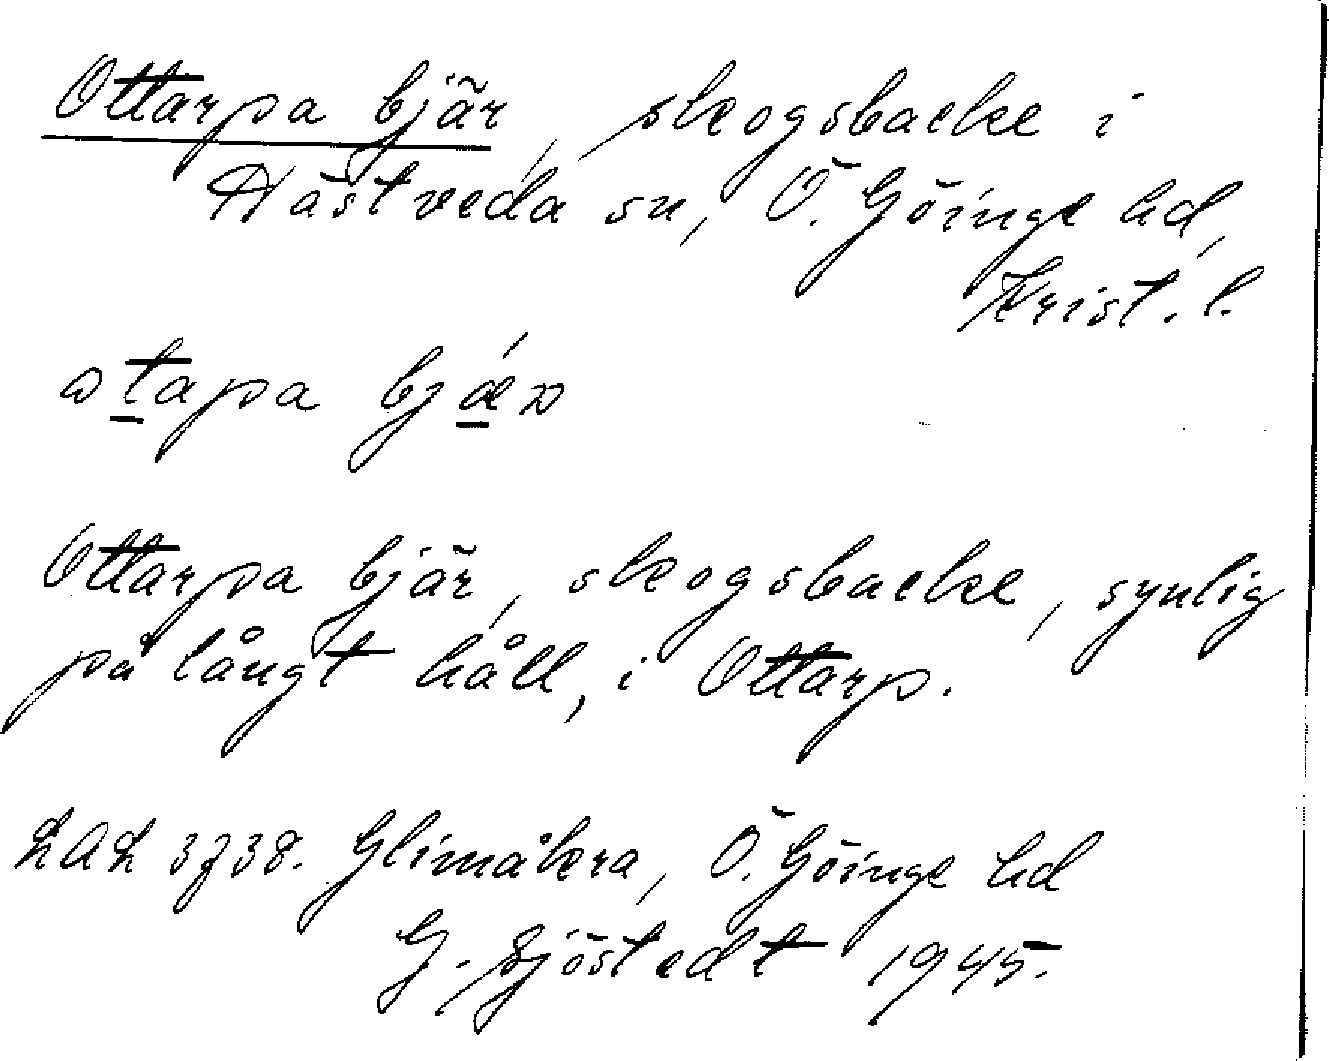 Ottarpa bjär, skogsbacke i
Hästveda sn, Ö. Göinge hd,
Krist. l.
Ottarpa bjär, skogsbacke, synlig
på långt håll, i Ottarp.
LAL 3738. Glimåkra, Ö. Göinge hd
G. Sjöstedt 1945.